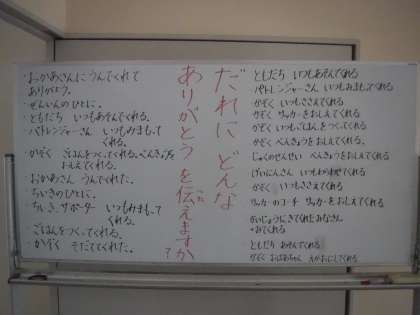 だれに どんな
ありがとうを伝えますか？
ともだち いつもあそんでくれる
パトレンジャーさん いつもみまもしてくれる
かぞく いつもささえてくれる
かぞく サッカーをおしえてくれる
かぞく いつもごはんをつくってくれる
かぞく べんきょうをおしえてくれる。
じゅくのせんせい べんきょうをおしえてくれる
げいにんさん いつもわらわせてくれる
かぞく いつもささえてくれる
サッカーのコーチ サッカーをおしえてくれる
かいじょうにきてくれたみなさん
みてくれる
ともだち あそんでくれる
かぞく おばあちゃん えがおにしてくれる
・おかあさんにうんでくれて
ありがとう。
・ぜんいんのひとに。
・ともだち いつもあそんでくれる。
・パトレンジャーさん いつもみまもって
くれる。
・かぞく ごはんをつくってくれる。べんきょうを
おしえてくれる。
・おかあさん うんでくれた。
・ちいきのひとに。
・ちいき、サポーター いつもみまもって
くれる。
・ごはんをつくってくれる。
・かぞく そだててくれた。